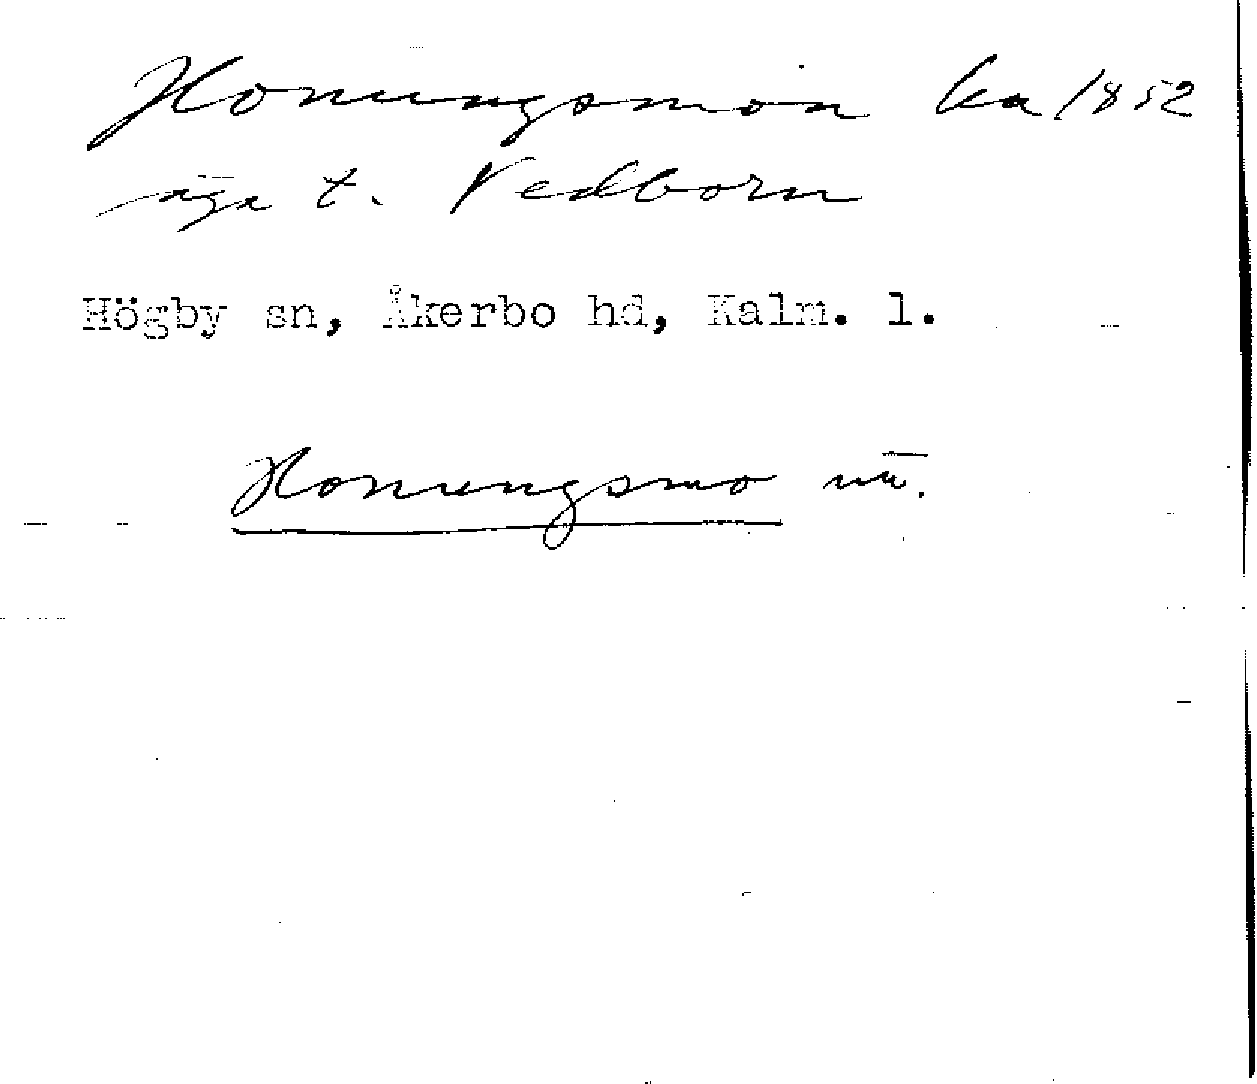 Honungsmon ka 1852
äga t. Vedborn
Högby sn, Åkerbo hd, Kalm. l.
Honungsmo nä.